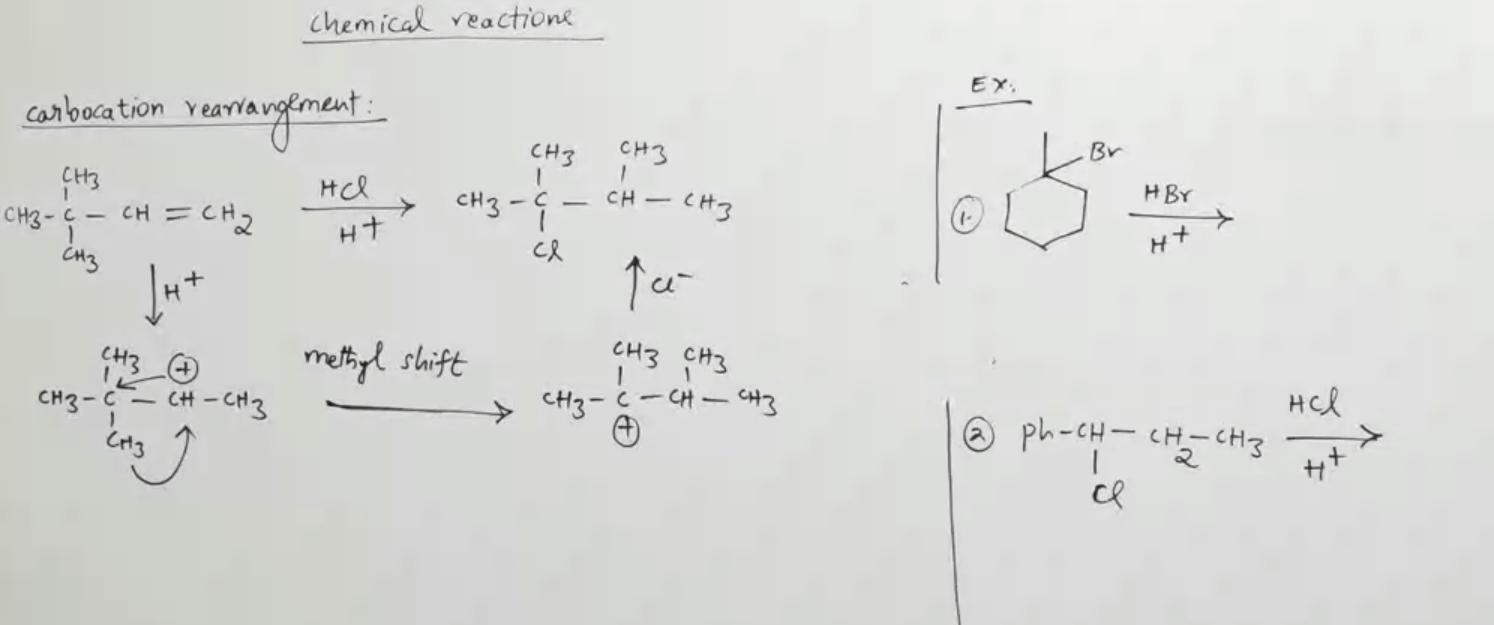 chemical reactione
carbocation rearrangement:
CH3
CH3-C-CH=CH2
CH3
HCl
H+
CH3 CH3
CH3-C-CH-CH3
Cl
H+
Cl-
CH3 +
CH3-C-CH-CH3
CH3
methyl shift
CH3 CH3
CH3-C-CH-CH3
+
Ex:
1. Br
HBr
H+
2 ph-CH-CH2-CH3
Cl
HCl
H+